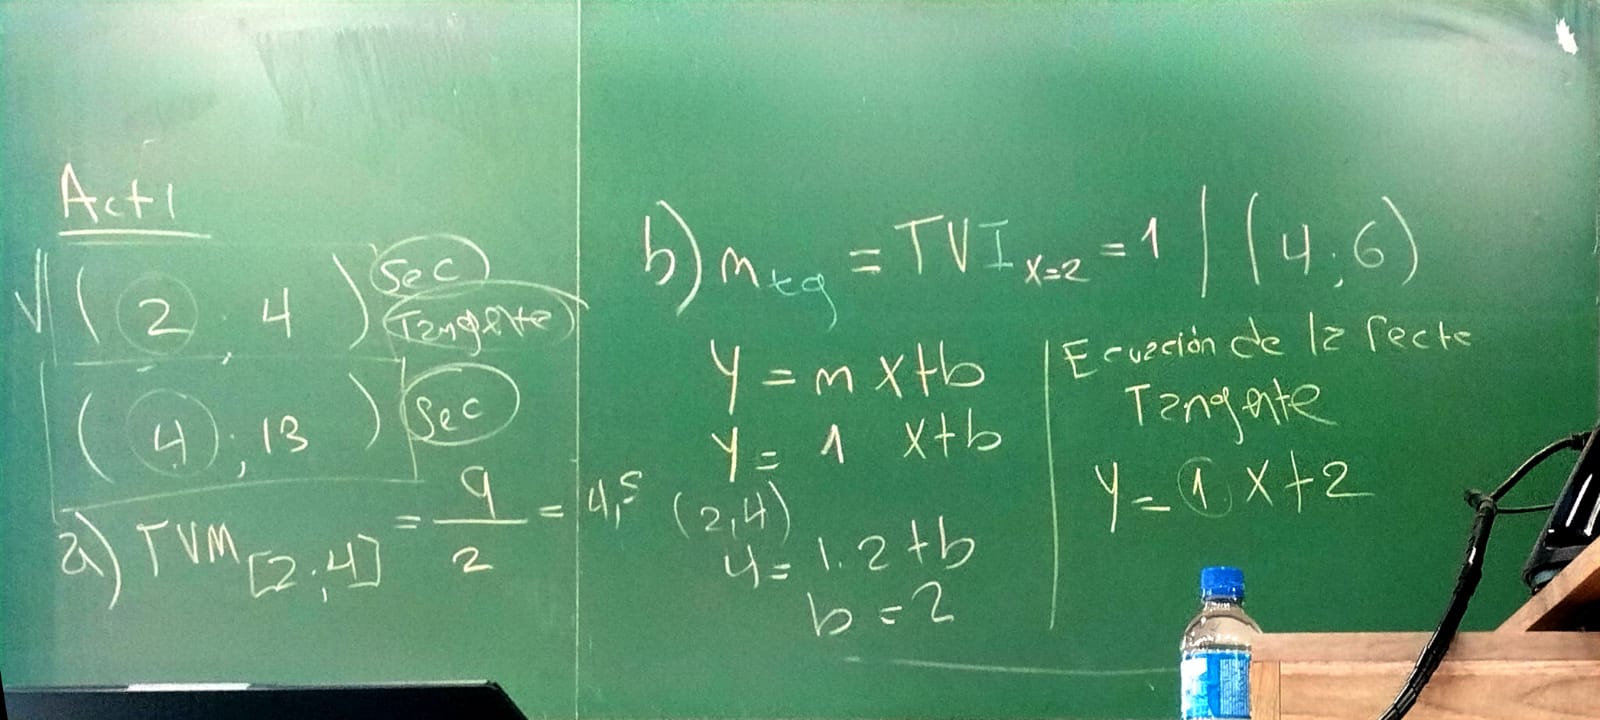 Act1
(2; 4) Sec
Tangente
(4; 13) Sec
a) TVM [2;4] = 9/2 = 4,5
b) m tg = TVI x=2 = 1 | (4;6)
y = m x+b
y = 1 x+b
(2,4)
4 = 1.2+b
b = 2
Ecuación de la recta
Tangente
y = 1 x+2